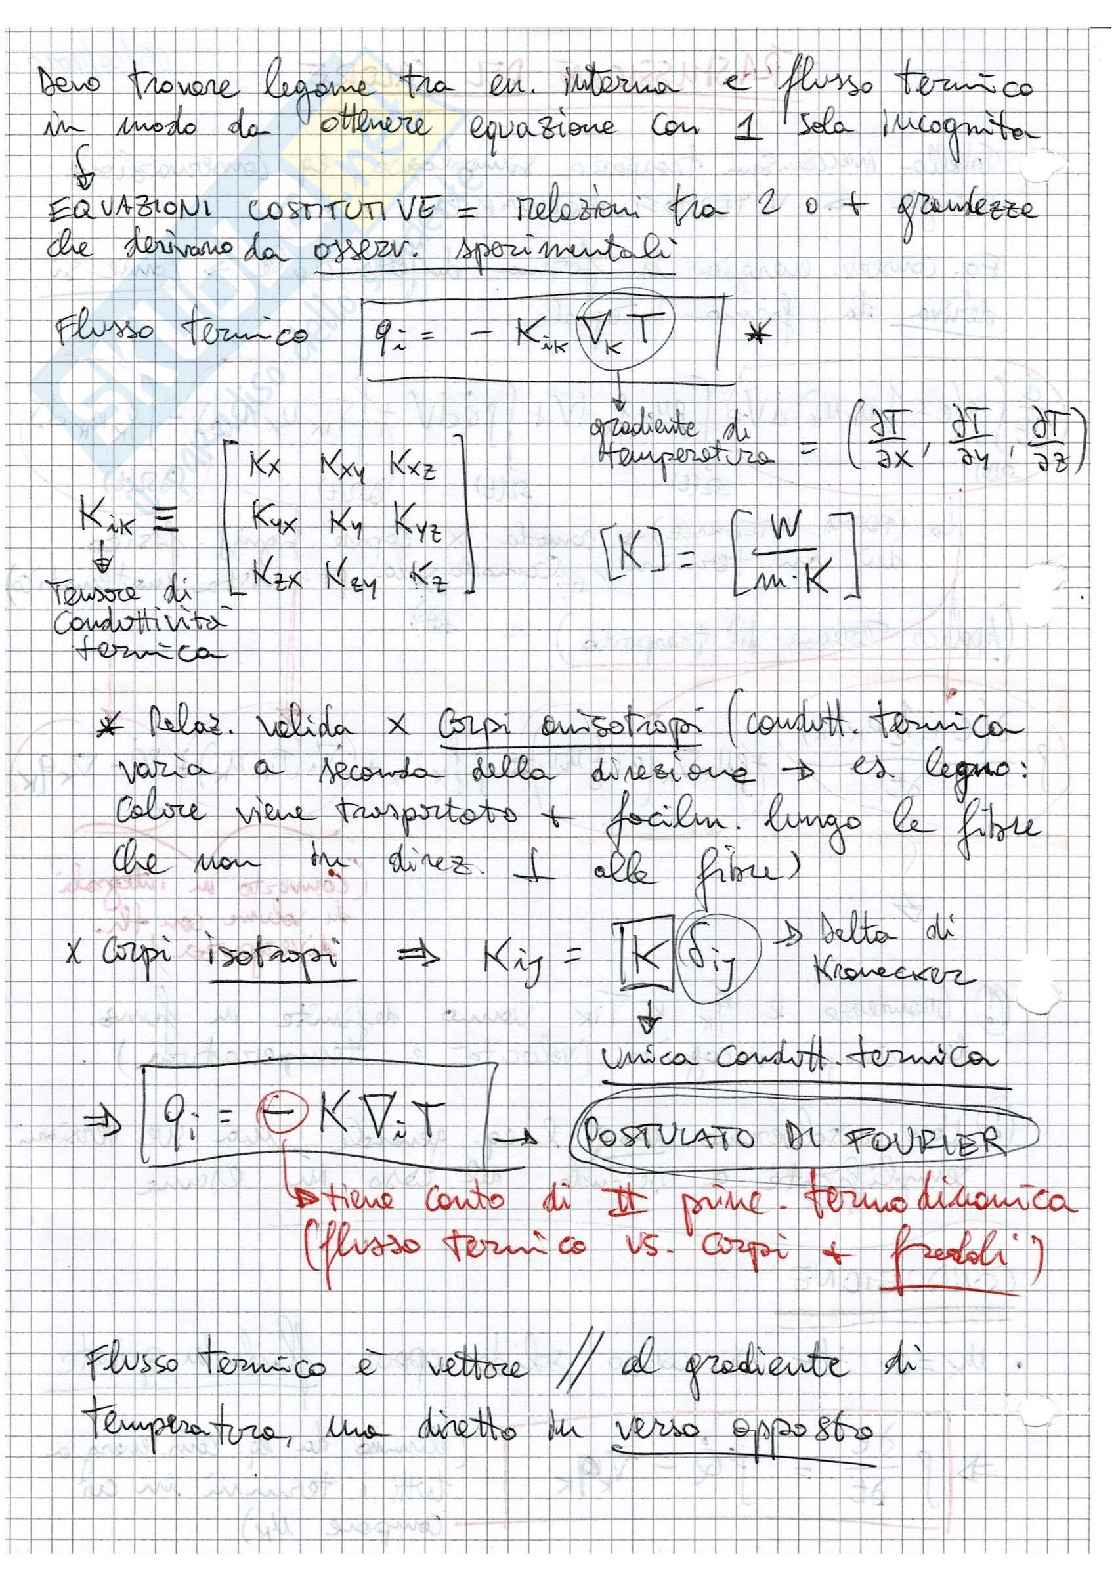 Devo trovare legame tra en. interna e flusso termico
in modo da ottenere equazione con 1 sola incognita
↓
EQUAZIONI COSTITUTIVE = relazioni tra 2 o + grandezze
che derivano da osserv. sperimentali
Flusso termico q_i = - K_ik ∇_k T *
gradiente di temperatura = (∂T/∂x, ∂T/∂y, ∂T/∂z)
K_ik ≡ [Kx Kxy Kxz
Kyx Ky Kyz
Kzx Kzy Kz]
[K] = [W / m·K]
Tensore di
conduttività
termica
* Relaz. valida x corpi anisotropi (condutt. termica
varia a seconda della direzione → es. legno:
calore viene trasportato + facilm. lungo le fibre
che non in direz. ⊥ alle fibre)
x corpi isotropi ⇒ K_ij = K δ_ij → Delta di
Kronecker
↓
unica condutt. termica
⇒ q_i = - K ∇_i T → POSTULATO DI FOURIER
→ tiene conto di II princ. termodinamica
(flusso termico vs. corpi + freddi)
Flusso termico è vettore // al gradiente di
temperatura, ma diretto in verso opposto